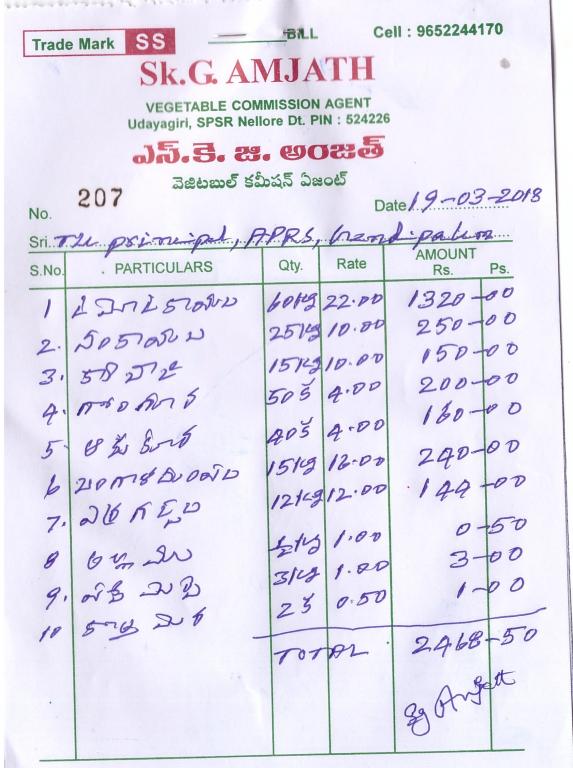 Trade Mark SS BILL Cell : 9652244170
Sk.G. AMJATH
VEGETABLE COMMISSION AGENT
Udayagiri, SPSR Nellore Dt. PIN : 524226
ఎస్.కె. జి. అంజత్
వెజిటబుల్ కమీషన్ ఏజంట్
No. 207 Date 19-03-2018
Sri. The principal, APRS,
S.No. PARTICULARS Qty. Rate AMOUNT Rs. Ps.
1 60kg 22.00 1320-00
2. వంకాయలు 25kg 10.00 250-00
3. 15kg 10.00 150-00
4. గోంగూర 50క 4.00 200-00
5. ఆకుకూర 40క 4.00 160-00
6 15kg 16.00 240-00
7. 12kg 12.00 144-00
8 అల్లము ½kg 1.00 0-50
9. 3kg 1.00 3-00
10 2క 0.50 1-00
TOTAL 2468-50